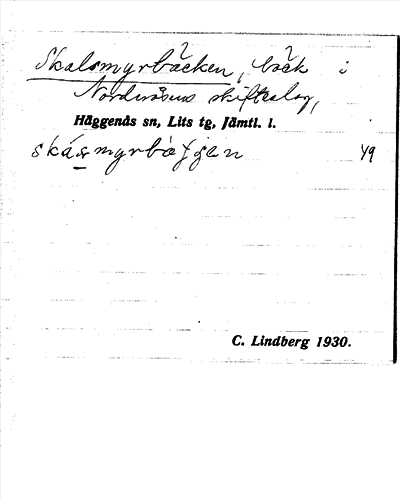 Skalsmyrbäcken, bäck i
Nordvåsens skifteslag,
Häggenås sn, Lits tg, Jämtl. l.
skásmyrbàʃʃen 49
C. Lindberg 1930.